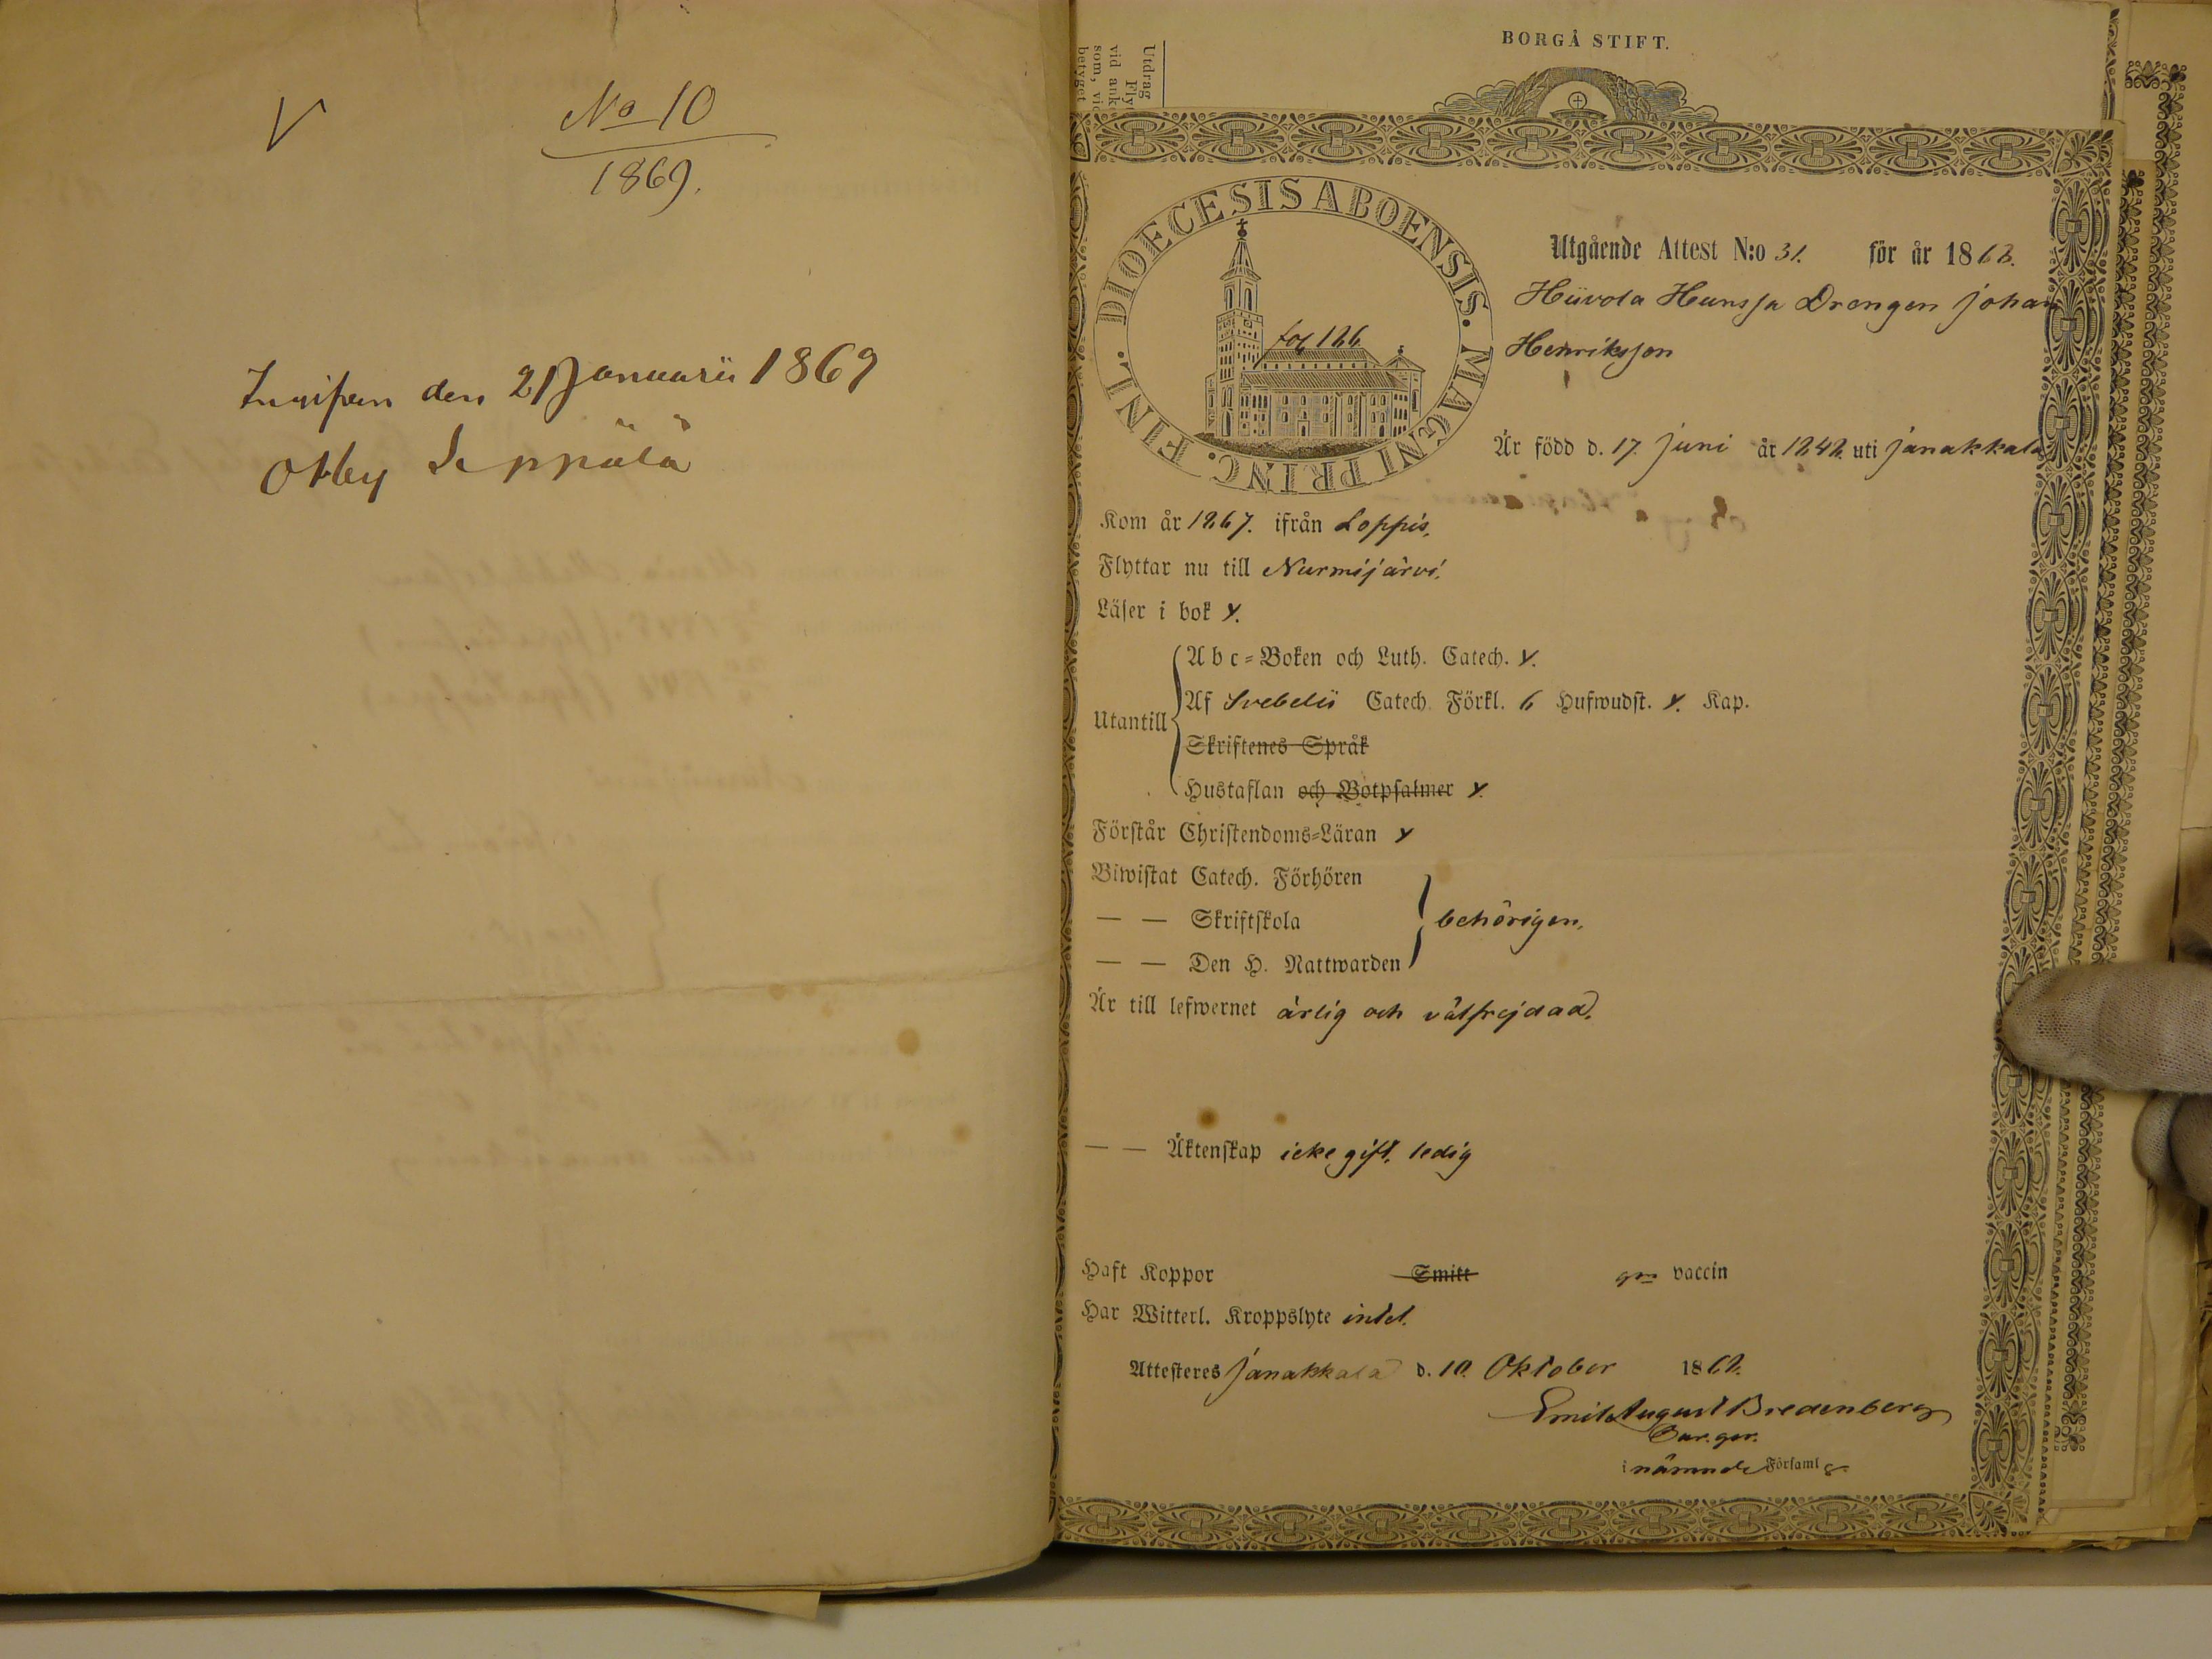 V
No 10
1869.
den 21 Januarii 1869
Otby Seppälä
BORGÅ STIFT.
Utdrag
Fly
vid ank
som, vid
betyget
DIOECESIS ABOENSIS. MAGNI PRINC. FINL.
fog 126
Utgående Attest N:o 31. för år 1868.
Hiivola Hunsja Drengen Johan
Henriksson
Är född d. 17. Juni år 1842. uti Janakkala
Kom år 1867. ifrån Loppis.
Flyttar nu till Nurmijärvi.
Läser i bok Y.
Utantill
Abc-Boken och Luth. Catech. Y.
Af Svebelii Catech Förkl. 6 Hufwudst. Y. Kap.
Skriftenes Språk
Hustaflan och Botpsalmer Y.
Förstår Christendoms-Läran Y
Biwistat Catech. Förhören
— — Skriftskola behörigen.
— — Den H. Nattwarden
Är till lefwernet ärlig och välfrejdad.
— — Äktenskap icke gift, ledig
Haft Koppor Smitt gm vaccin
Har Witterl. Kroppslyte intet.
Attesteres Janakkala d. 10. Oktober 1868.
Emil August Bredenberg
i nämnde Församl g.